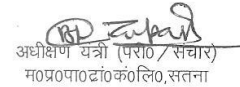 अधीक्षण यंत्री (परी० / संचार)
म०प्र०पा०ढां०कं०लि०,सतना